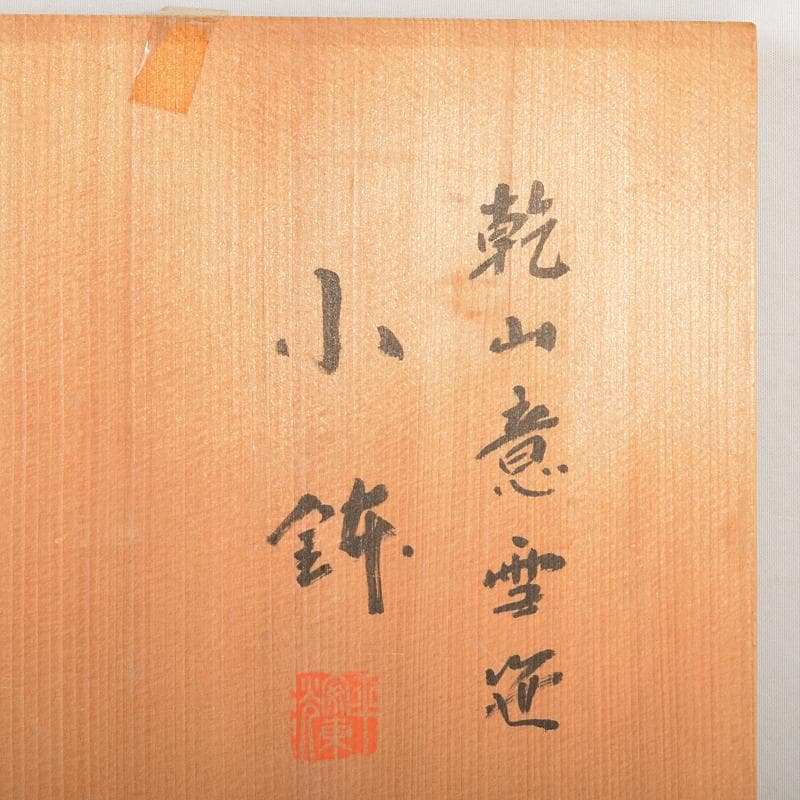 乾山意雪笹
小鉢